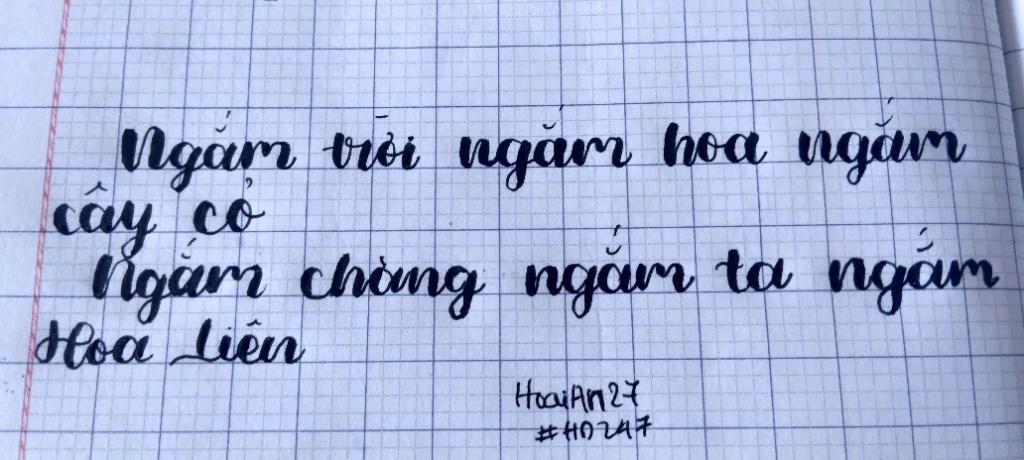 Ngắm trời ngắm hoa ngắm
cây cỏ
Ngắm chàng ngắm ta ngắm
Hoa Liên
HoaiAn27
#HD247